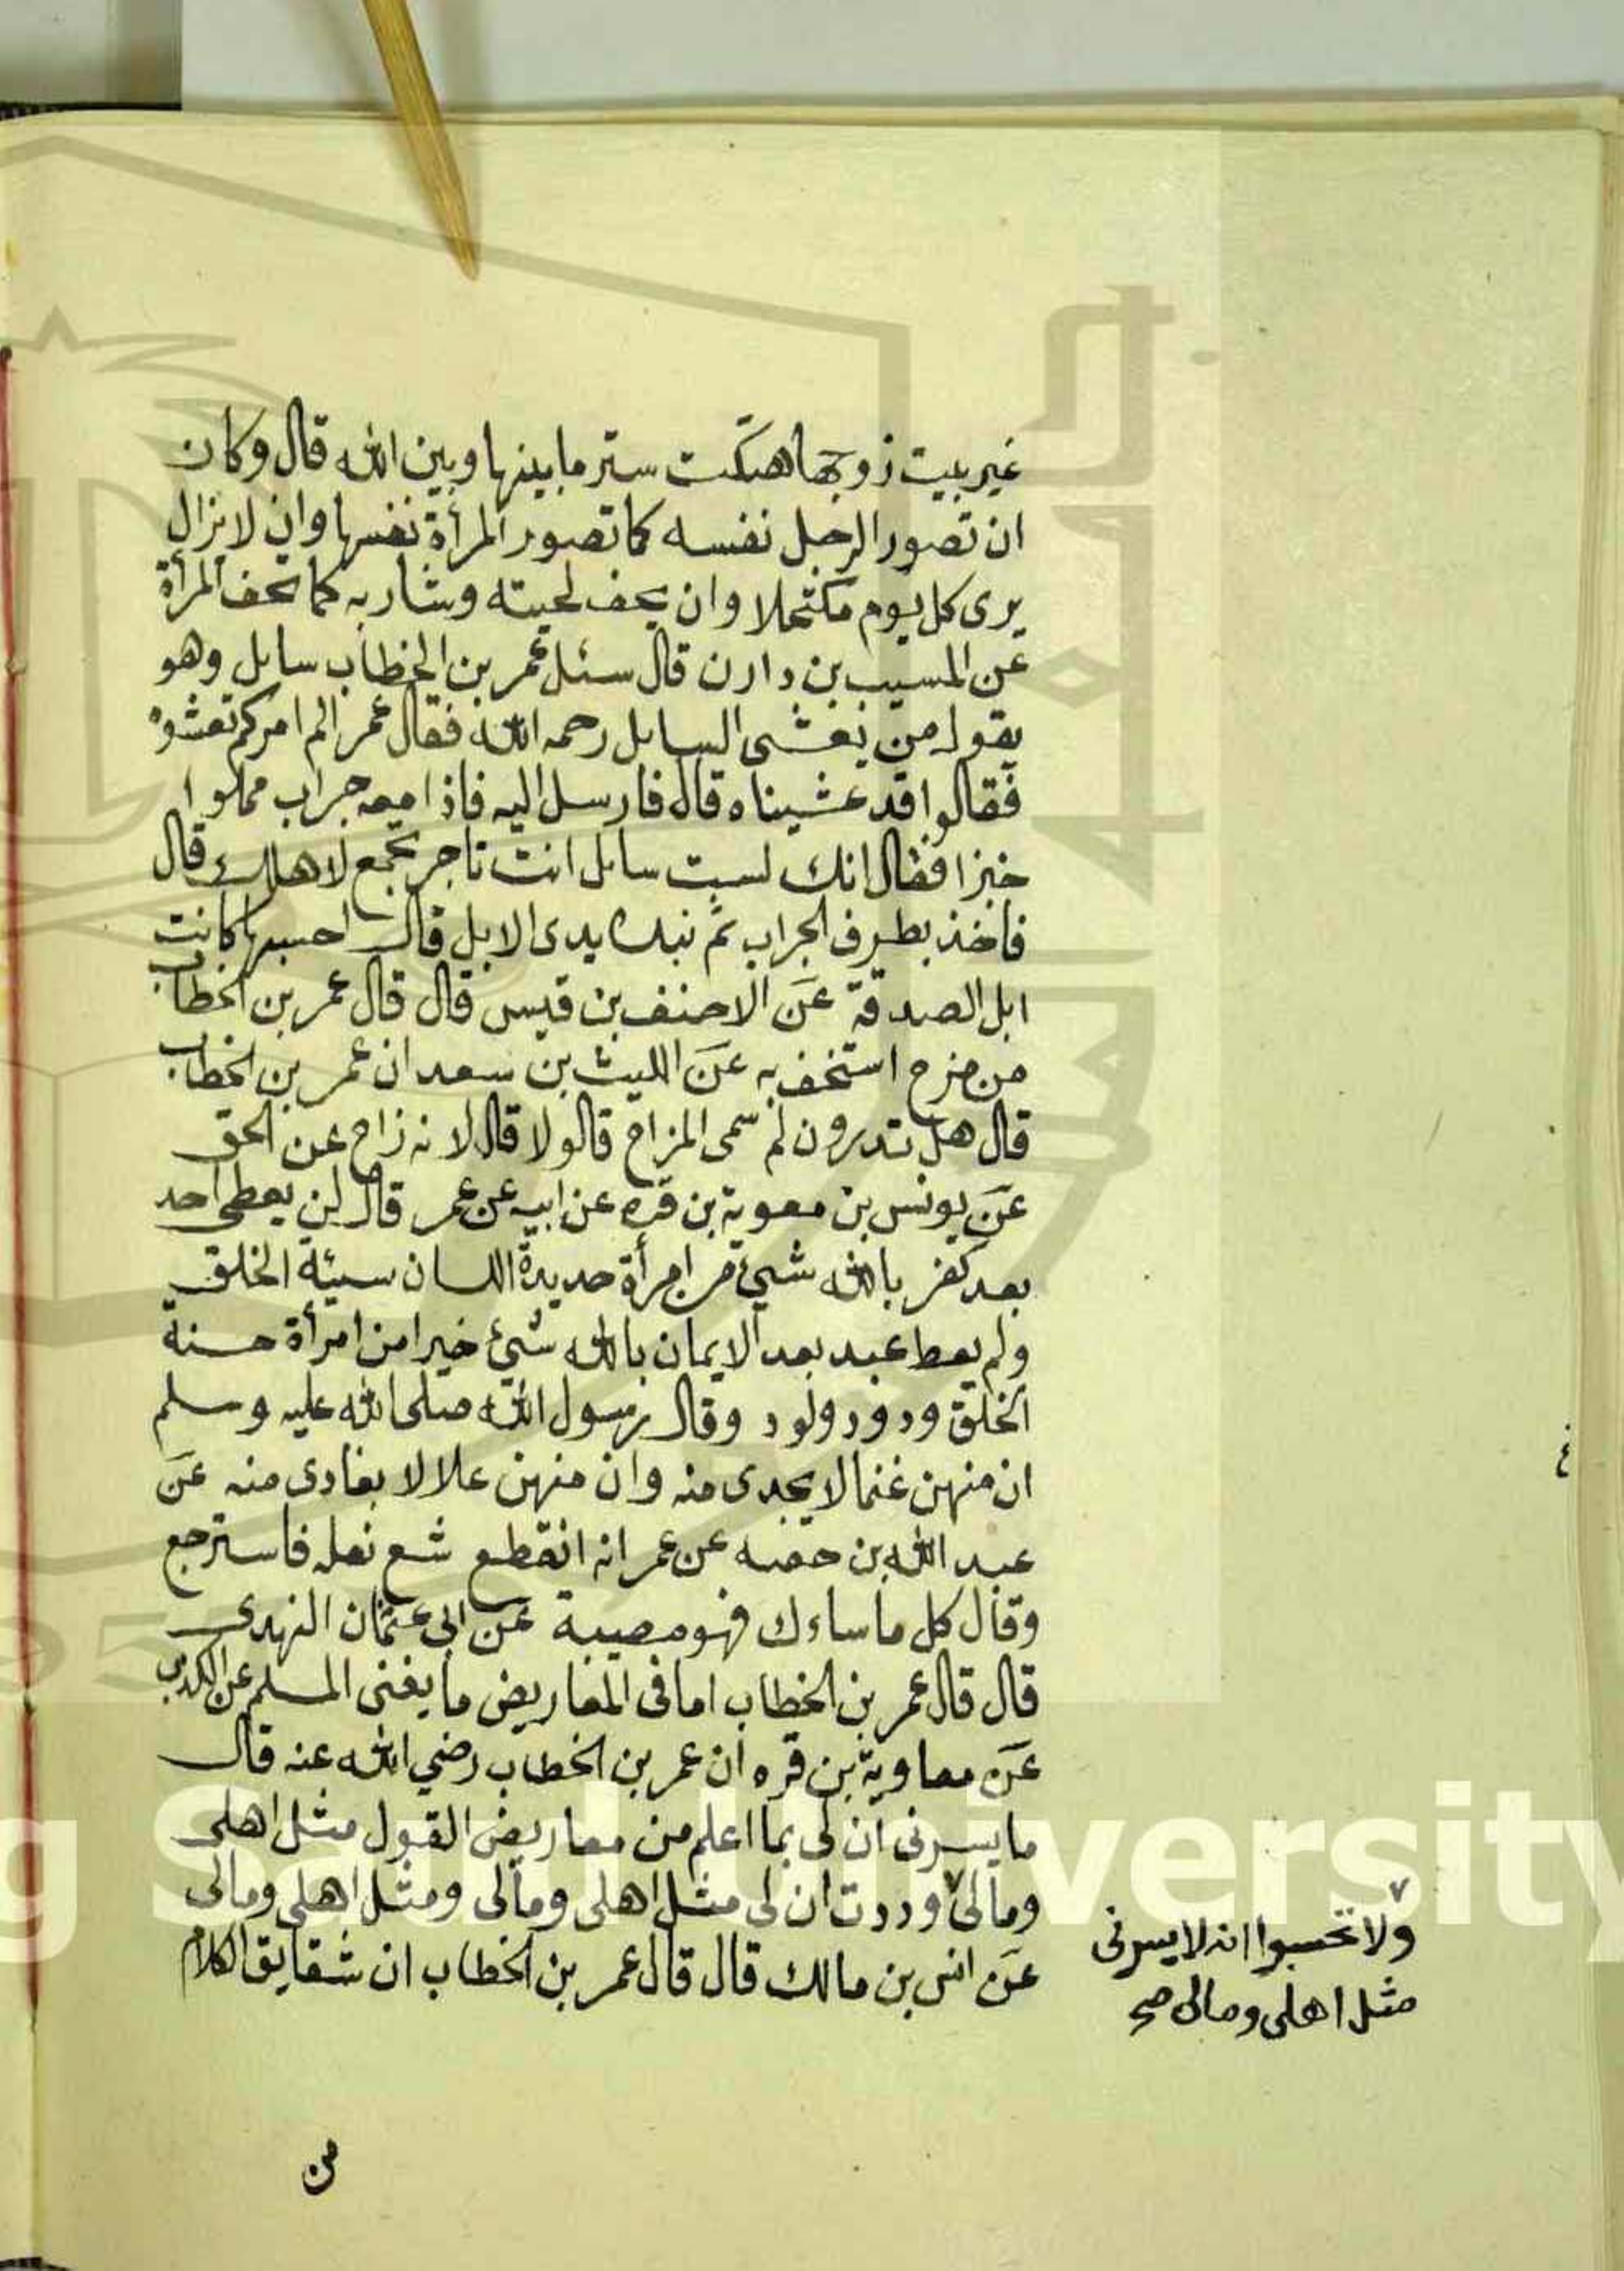 غير بيت زوجها هتكت ستر ما بينها وبين الله قال وكان
ان تصور الرجل نفسه كما تصور المرأة نفسها وان لا يزال
يرى كل يوم مكتحلا وان يحف لحيته وشاربه كما تحف المرأة
عن المسيب بن دارن قال سئل عمر بن الخطاب سايل وهو
يقول من يعشى السايل رحمه الله فقال عمر الم امركم تعشوه
فقالوا قد عشيناه قال فارسل اليه فاذا معه جراب مملوا
خبزا فقال انك لست سايل انت تاجر تجمع لاهلك قال
فاخذ بطرف الجراب ثم نبذه يدى الابل قال احسبها كانت
ابل الصدقة عن الاحنف بن قيس قال قال عمر بن الخطاب
من مزح استخف به عن الليث بن سعد ان عمر بن الخطاب
قال هل تدرون لم سمى المزاح قالو لا قال لانه زاح عن الحق
عن يونس بن معوية بن قره عن ابيه عن عمر قال لن يعطى احد
بعد كفر بالله شيئ من امرأة حديدة اللسان سيئة الخلق
ولم يعط عبد بعد الايمان بالله شيئ خيرا من امرأة حسنة
الخلق ودود ولود وقال رسول الله صلى الله عليه وسلم
ان منهن غنما لا يجدى منه وان منهن علالا يفادى منه عن
عبد الله بن حقبه عن عمر انه انقطع شع نعله فاسترجع
وقال كل ما ساءك فهو مصيبة عن ابى عثمان النهدى
قال قال عمر بن الخطاب اما فى المعاريض ما يغنى المسلم عن الكذب
عن معاوية بن قره ان عمر بن الخطاب رضي الله عنه قال
ما يسرنى ان لى بما اعلم من معاريض القول مثل اهلى
ومالى ٧ وددت ان لى مثل اهلى ومالى ومثل اهلى ومالى
عن انس بن مالك قال قال عمر بن الخطاب ان شقايق الكلام
٧
ولا تحسبوا انه لا يسرنى
مثل اهلى ومالى صح
من
King Saud University